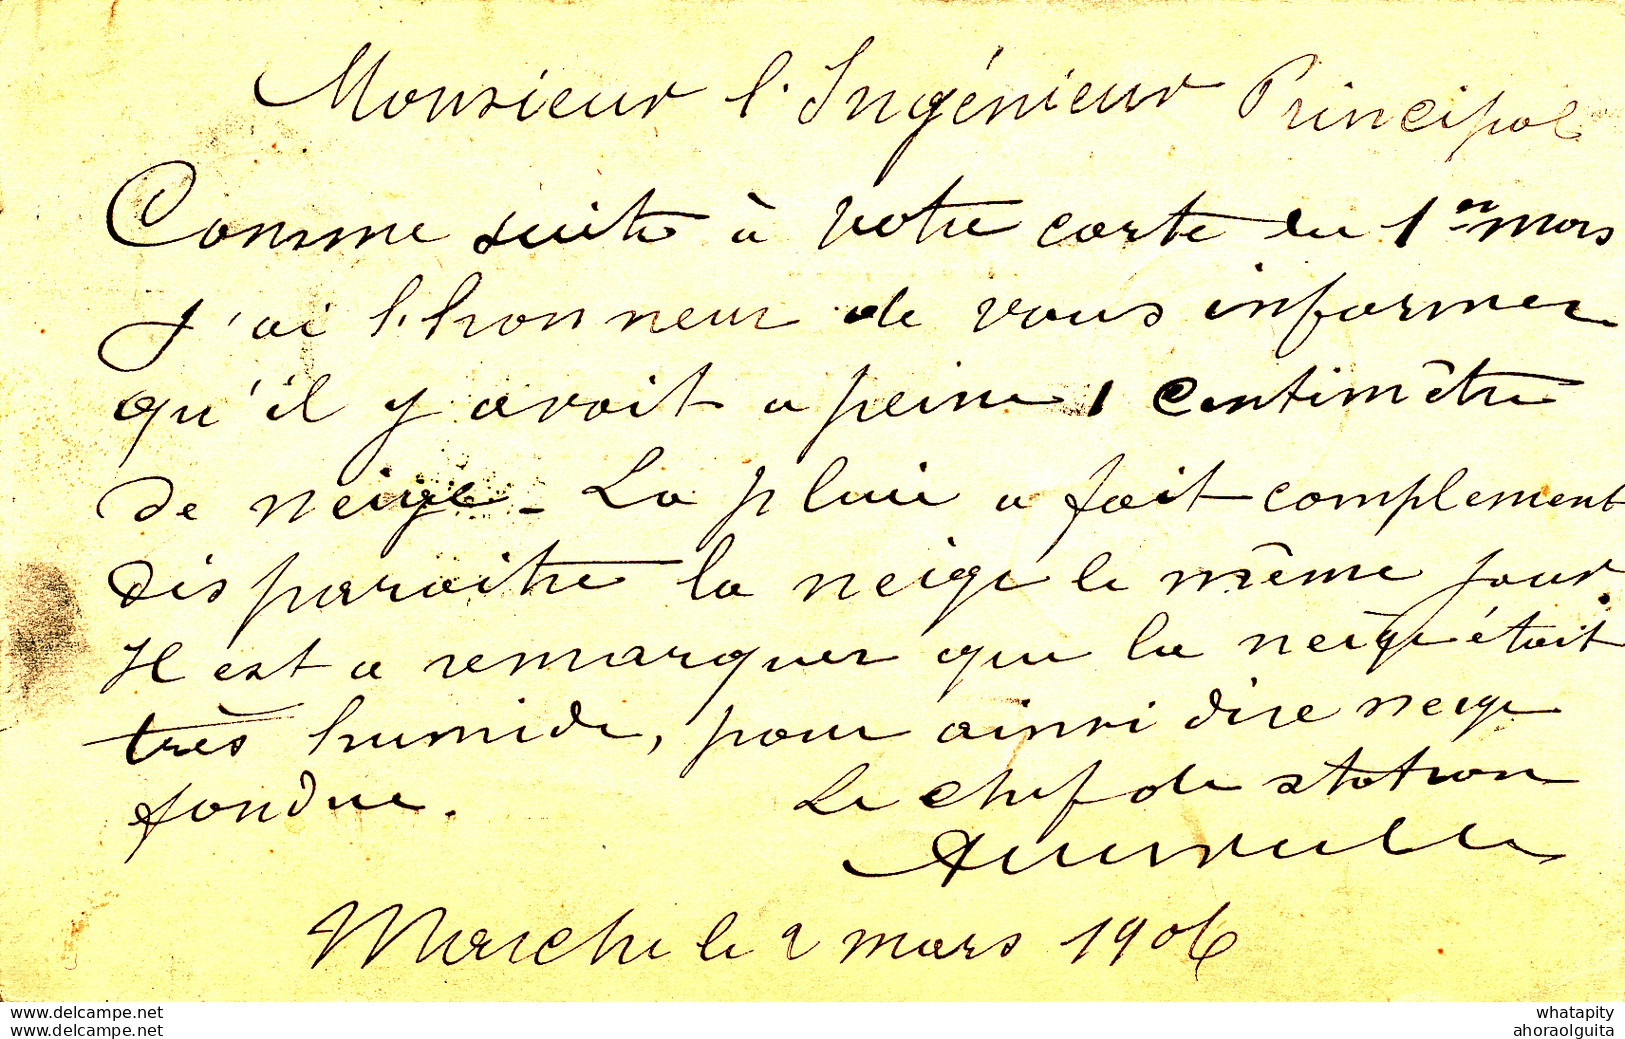 Monsieur l'Ingénieur Principal
Comme suite à votre carte du 1er mars
J'ai l'honneur de vous informer
qu'il y avait a peine 1 centimètre
de neige - La pluie a fait complement
disparaitre la neige le même jour.
Il est a remarquer que la neige était
très humide, pour ainsi dire neige
fondue.
Le chef de station
Marche le 2 mars 1906
www.delcampe.net
www.delcampe.net
whatapity
ahoraolguita